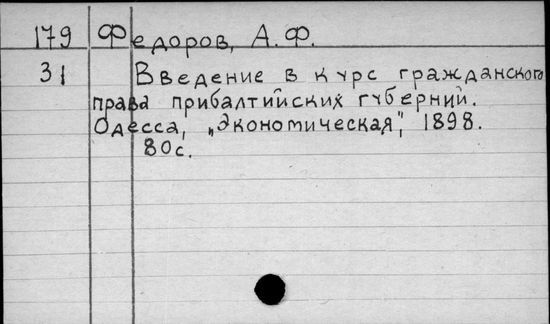 179 Федоров, А.Ф.
31 Введение в курс гражданского
права прибалтийских губерний.
Одесса, „Экономическая", 1898.
80с.